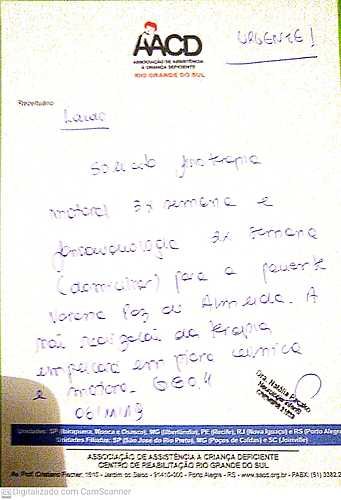 AACD
URGENTE!
ASSOCIAÇÃO DE ASSISTÊNCIA
À CRIANÇA DEFICIENTE
RIO GRANDE DO SUL
Receituário
Laudo
Solicito fisioterapia
motora 3x semana e
fonoaudiologia 3x semana
(domiciliar) para a paciente
de Almeida. A
não realização da terapia
em piora clínica
e motora. G80.4
Dra. Natália
Unidades: SP (Ibirapuera, Mooca e Osasco), MG (Uberlândia), PE (Recife), RJ (Nova Iguaçu) e RS (Porto Alegre)
Unidades Filiadas: SP (São José do Rio Preto), MG (Poços de Caldas) e SC (Joinville)
ASSOCIAÇÃO DE ASSISTÊNCIA À CRIANÇA DEFICIENTE
CENTRO DE REABILITAÇÃO RIO GRANDE DO SUL
Av. Prof. Cristiano Fischer, 1510 - Jardim do Salso - 91410-000 - Porto Alegre - RS - www.aacd.org.br - PABX: (51) 3382.2
Digitalizado com CamScanner